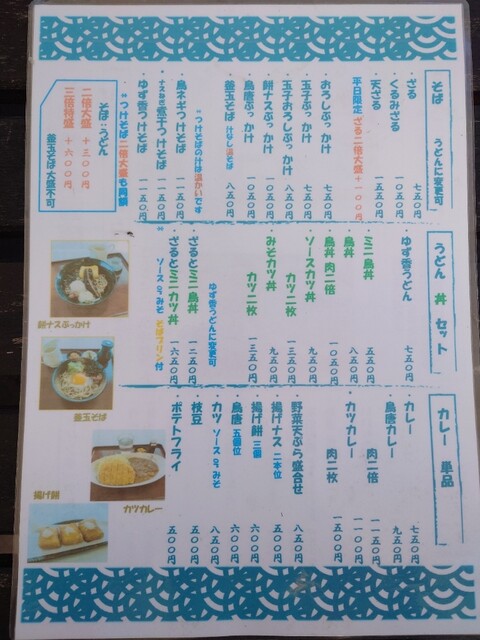 そば うどんに変更可
・ざる 七五〇円
・くるみざる 一〇五〇円
・天ざる 一五五〇円
平日限定 ざる二倍大盛＋一〇〇円
・おろしぶっかけ 七五〇円
・玉子ぶっかけ 七五〇円
・玉子おろしぶっかけ 八五〇円
・餅ナスぶっかけ 一〇五〇円
・鳥唐ぶっかけ 九五〇円
・釜玉そば 汁なし温そば 八五〇円
"つけそばの汁は温かいです
・鳥ネギつけそば 一一五〇円
・ナスなめこ煮干つけそば 一一五〇円
・ゆず香つけそば 一一五〇円
"つけそば二倍大盛も同額
そば・うどん
二倍大盛 ＋三〇〇円
三倍特盛 ＋六〇〇円
釜玉そば大盛不可
うどん 丼 セット
・ゆず香うどん 七五〇円
・ミニ鳥丼 五五〇円
・鳥丼 八五〇円
・鳥丼 肉二倍 一〇五〇円
・ソースカツ丼 九五〇円
カツ二枚 一三五〇円
・みそカツ丼 九五〇円
カツ二枚 一三五〇円
ゆず香うどんに変更可
・ざるとミニ鳥丼 一二五〇円
・ざるとミニカツ丼 一六五〇円
"ソース or みそ そばプリン付
カレー 単品
・カレー 七五〇円
・鳥唐カレー 九五〇円
肉二倍 一一五〇円
・カツカレー 一一〇〇円
肉二枚 一五〇〇円
・野菜天ぷら盛合せ 八五〇円
・揚げナス 二本位 五〇〇円
・揚げ餅 三個 六〇〇円
・鳥唐 五個位 六〇〇円
・カツ ソース or みそ 八五〇円
・枝豆 五〇〇円
・ポテトフライ 五〇〇円
餅ナスぶっかけ
釜玉そば
カツカレー
揚げ餅